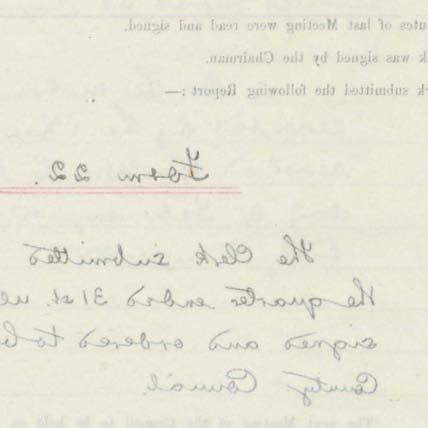 utes of last Meeting were read and signed.
k was signed by the Chairman.
rk submitted the following Report :—
Form 22.
The Clerk submitted
the quarter ended 31st.
signed and ordered to be
County Council.
The next Meeting of the Council to be held on